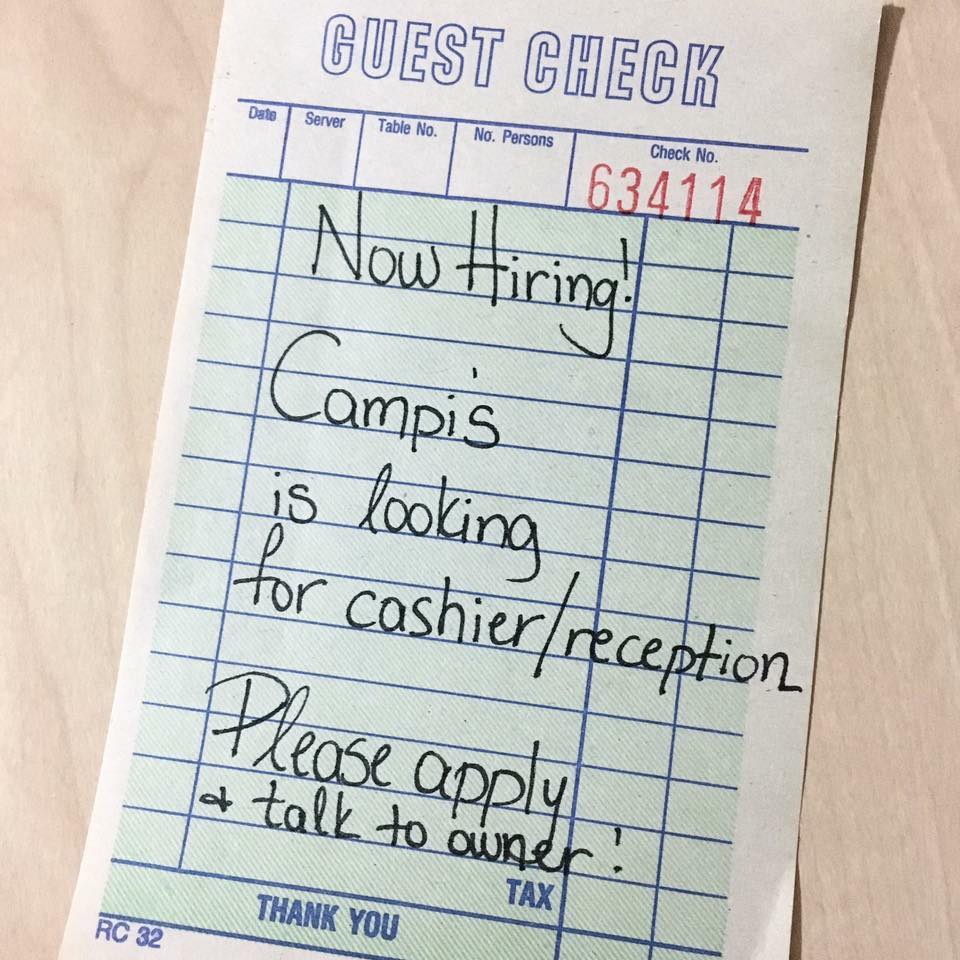 GUEST CHECK
Date Server Table No. No. Persons Check No.
634114
Now Hiring!
Campi's
is looking
for cashier/reception
Please apply
& talk to owner!
TAX
THANK YOU
RC 32